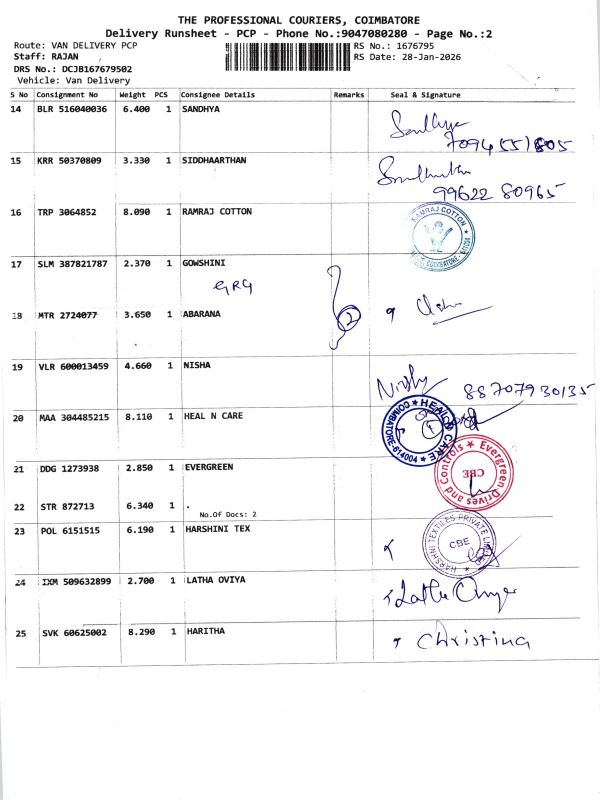 THE PROFESSIONAL COURIERS, COIMBATORE
Delivery Runsheet - PCP - Phone No.:9047080280 - Page No.:2
Route: VAN DELIVERY PCP
Staff: RAJAN
DRS No.: DCJB167679502
Vehicle: Van Delivery
RS No.: 1676795
RS Date: 28-Jan-2026
S No Consignment No Weight PCS Consignee Details Remarks Seal & Signature
14 BLR 516040036 6.400 1 SANDHYA
Sandhya
15 KRR 50370809 3.330 1 SIDDHAARTHAN
99622 80965
16 TRP 3064852 8.090 1 RAMRAJ COTTON
RAMRAJ COTTON
17 SLM 387821787 2.370 1 GOWSHINI
GRG
2
18 MTR 2724077 3.650 1 ABARANA
19 VLR 600013459 4.660 1 NISHA
88707930135
20 MAA 304485215 8.110 1 HEAL N CARE
21 DDG 1273938 2.850 1 EVERGREEN
Evergreen Drives and Controls
CBE
22 STR 872713 6.340 1 .
No.Of Docs: 2
23 POL 6151515 6.190 1 HARSHINI TEX
HARSHINI TEXTILES PRIVATE LIMITED
CBE
24 IXM 509632899 2.700 1 LATHA OVIYA
25 SVK 60625002 8.290 1 HARITHA
Christina